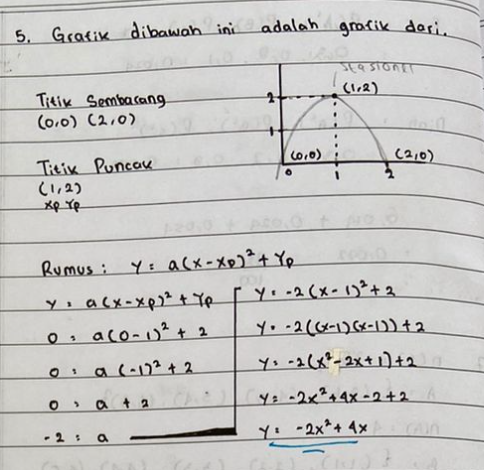 5. Grafik dibawah ini adalah grafik dari.
Titik Sembarang
(0,0) (2,0)
Titik Puncak
(1,2)
xp Yp
stasioner
2
(1,2)
1
(0,0)
(2,0)
0
1
2
Rumus : Y = a(x-xp)² + Yp
Y = a(x-xp)² + Yp
0 = a(0-1)² + 2
0 = a (-1)² + 2
0 = a + 2
-2 = a
Y = -2(x-1)² + 2
Y = -2((x-1)(x-1)) + 2
Y = -2(x²-2x+1)+2
Y = -2x²+4x-2+2
Y = -2x²+4x